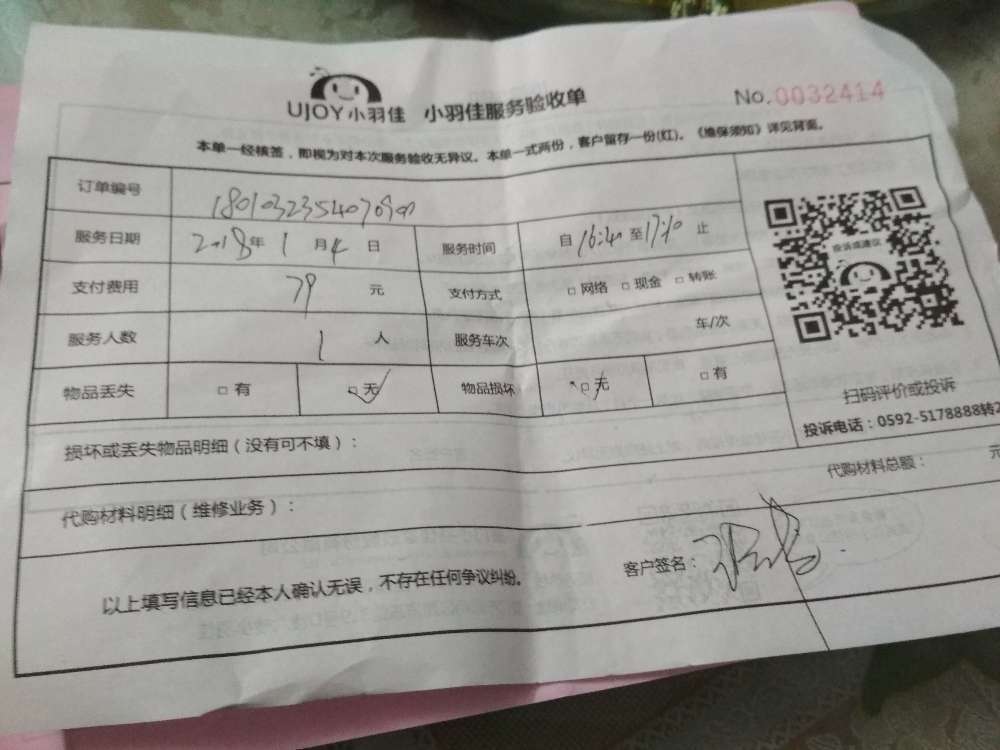 UJOY小羽佳 小羽佳服务验收单 No.0032414
本单一经核签，即视为对本次服务验收无异议。本单一式两份，客户留存一份(红)。《维保须知》详见背面。
订单编号
服务日期 2018年 1 月 4 日 服务时间 自 16:40 至 17:10 止
支付费用 79 元 支付方式 □ 网络 □ 现金 □ 转账
服务人数 1 人 服务车次 车/次
物品丢失 □ 有 □ 无 物品损坏 □ 无 □ 有
投诉或建议
扫码评价或投诉
投诉电话：0592-5178888转2
损坏或丢失物品明细（没有可不填）：
代购材料明细（维修业务）： 代购材料总额： 元
以上填写信息已经本人确认无误，不存在任何争议纠纷。 客户签名：